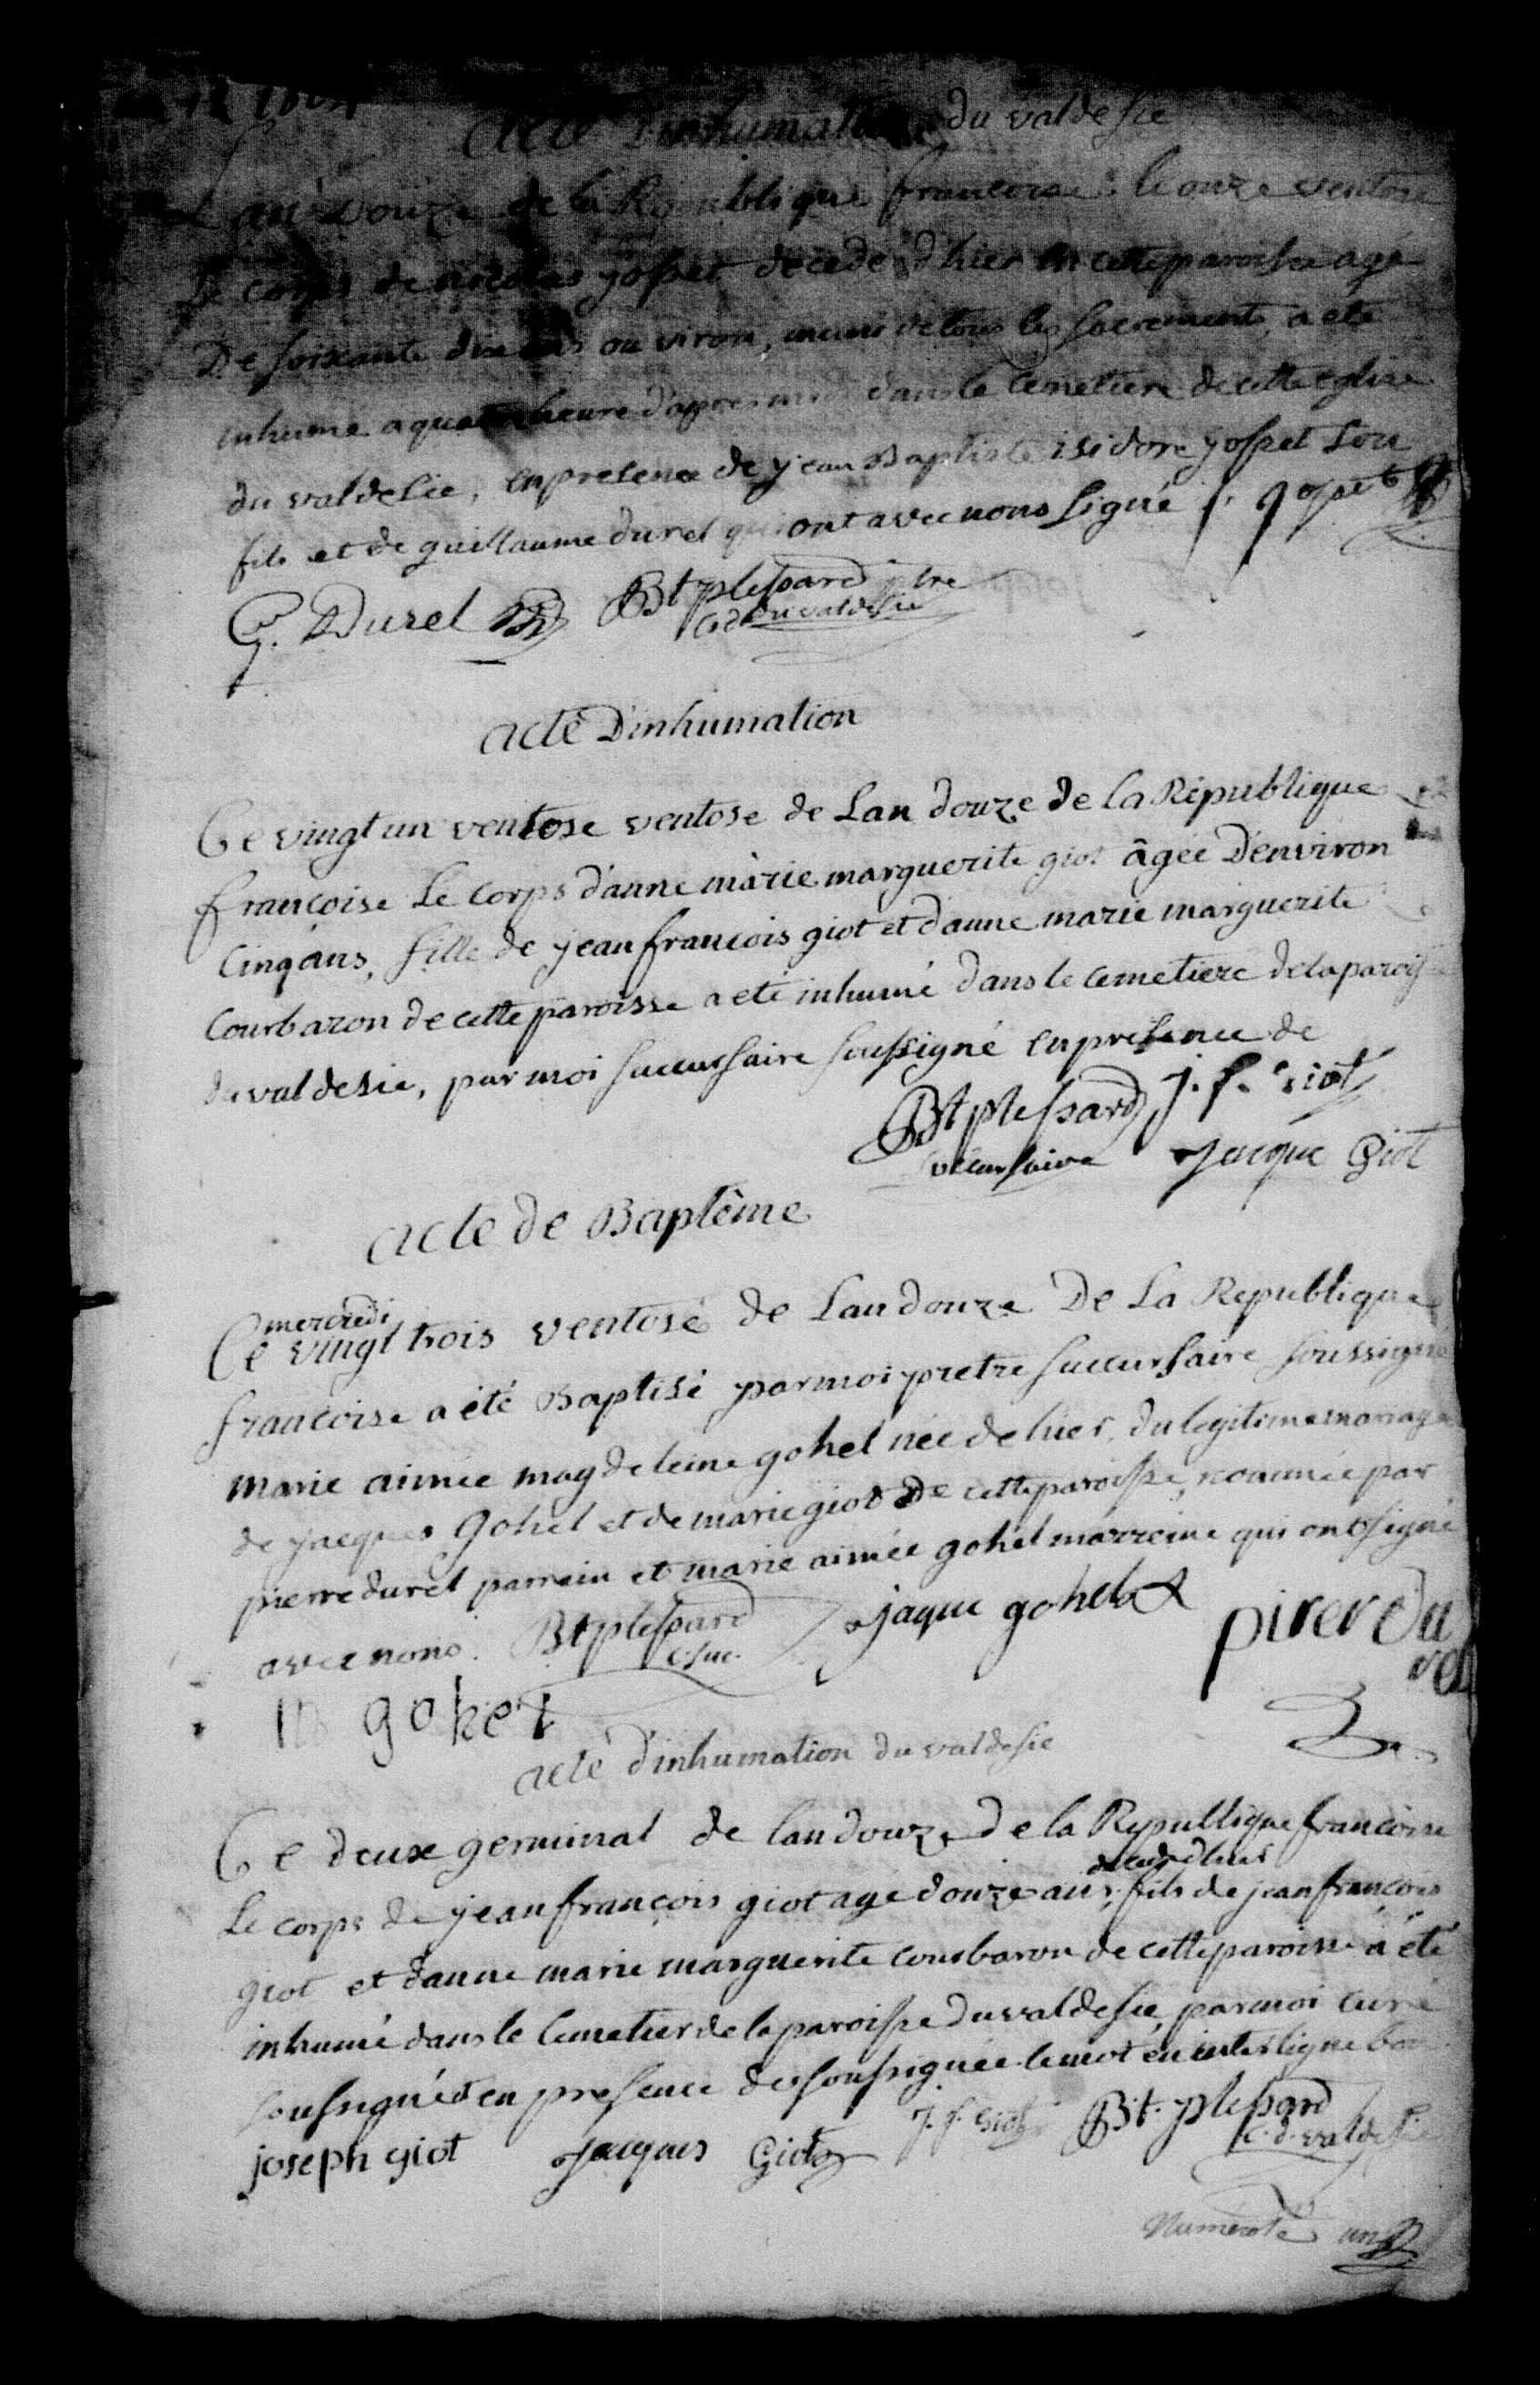 acte d'inhumation du valdesie
L'an douze de la Republique francoise le onze ventose
Le corps de nicolas josset decedé d'hier en cette paroisse agé
De soixante dix ans ou viron, muni de tous les sacrements, a eté
inhumé a quatre heure d'apres midi dans le cemetiere de cette eglise
du valdesie, en presence de jean Baptiste isidore josset son
fils et de guillaume durel qui ont avec nous signé j. josset
G. Durel Bt plessard ptre
c. d. du valdesie
acte D'inhumation
Ce vingt un ventose ventose de Lan douze de la République
françoise Le corps d'anne màrie marguerite giot âgée D'environ
Cinq ans, fille de jean francois giot et d'anne marie marguerite
Courbaron de cette paroisse a eté inhumé dans le cemetiere de la paroisse
du valdesie, par moi succursaire soussigné en presence de
Bt plessard j. f. Giot
succursaire Jacque Giot
acte de Baptême
mercredi
Ce vingt trois ventose de Lan douze De La Republique
francoise a été Baptisé par moi pretre succursaire soussigné
marie aimée magdeleine gohel née de hier, du legitime mariage
de jacques Gohel et de marie giot De cette paroisse, nommée par
pierre durel parrein et marie aimée gohel marreine qui ont signé
avec nous. Bt plessard jaque gohel pirer du
c. suc. rel
m gohel
acte d'inhumation du valdesie
Ce deux germinal de lan douze de la Republique francoise
decedé d'hier
Le corps de jean françois giot agé douze ans, fils de jean françois
giot et d'anne marie marguerite courbaron de cette paroisse a été
inhumé dans le cemetier de la paroisse du valdesie, par moi curé
soussigné et en presence des soussignée le mot en interligne bon
joseph giot Jacques Giot J. f. Giot Bt. plessard
c. d. valdesie
Numéroté un